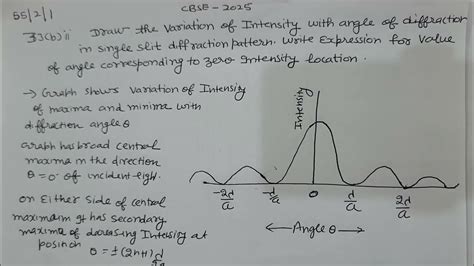 CBSE-2025
55/2/1
33(b)ii Draw the Variation of Intensity with angle of diffraction
in single slit diffraction pattern. Write Expression for Value
of angle corresponding to zero Intensity location.
→ Graph shows Variation of Intensity
of maxima and minima with
diffraction angle θ
Graph has broad central
maxima in the direction
θ=0° of incident light.
on Either side of central
maximum it has secondary
maxima of decreasing Intensity at
position θ = ±(2n+1) λ/2a
Intensity
-2λ/a -λ/a 0 λ/a 2λ/a
← Angle θ →